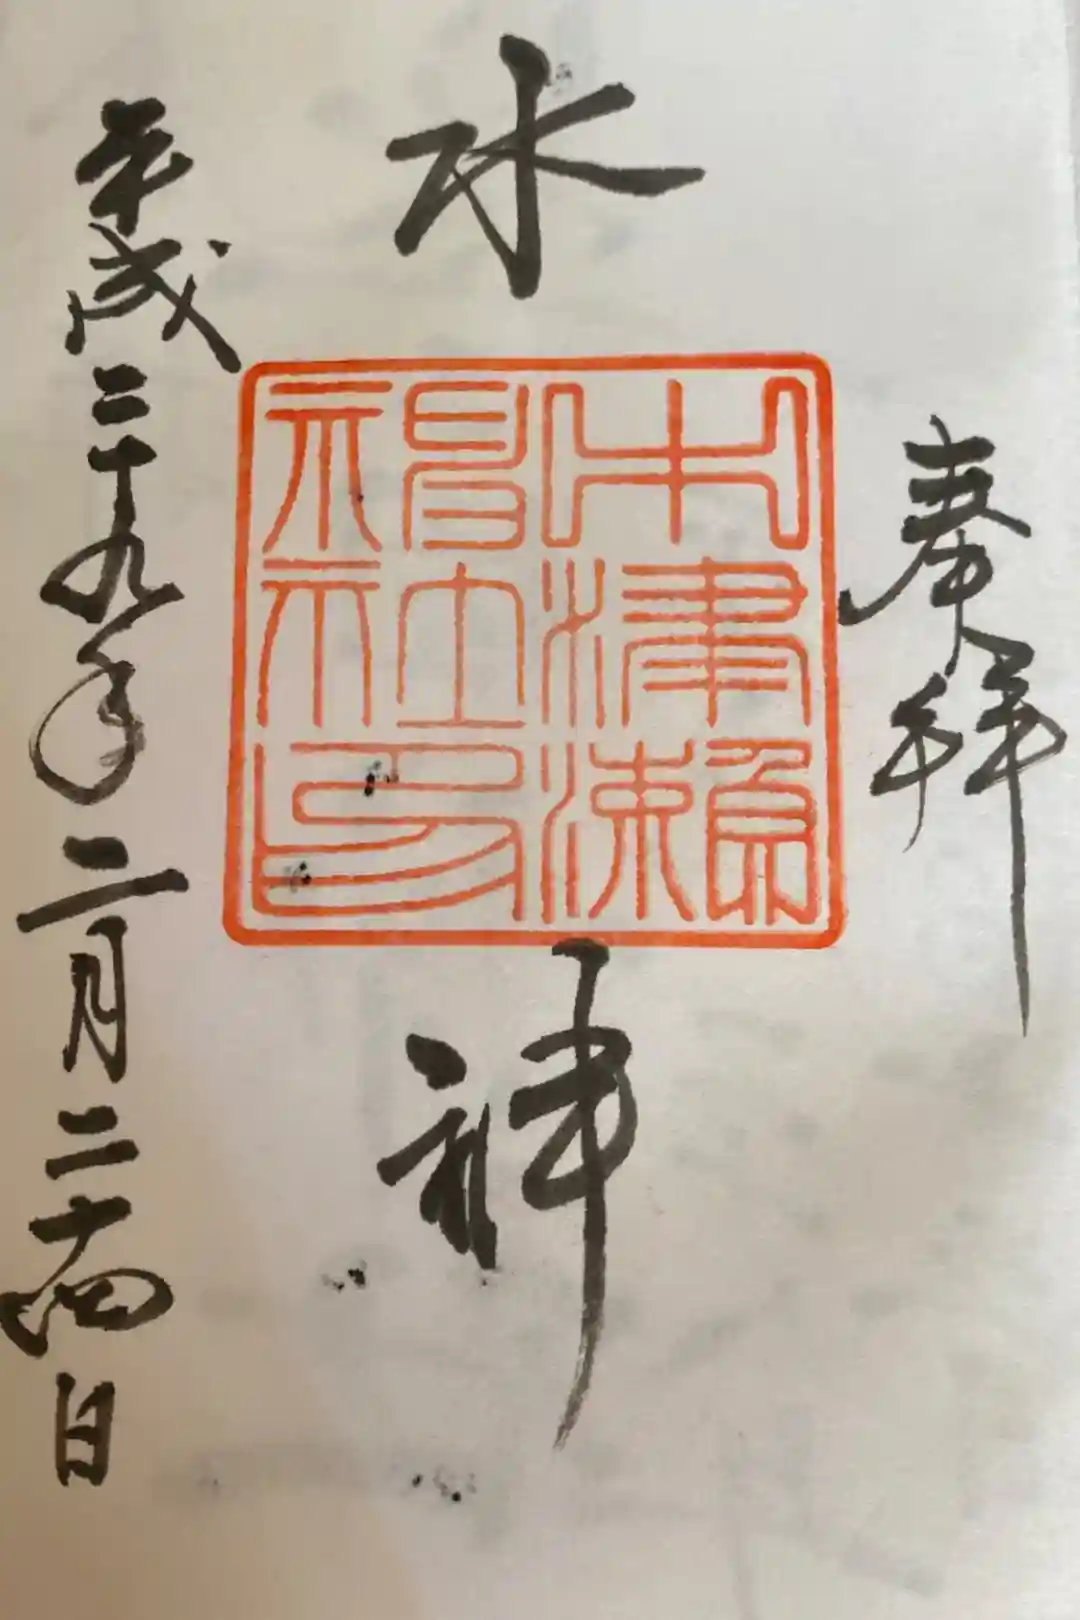 奉拝
水神
中津瀬
神社印
平成二十九年二月二十四日